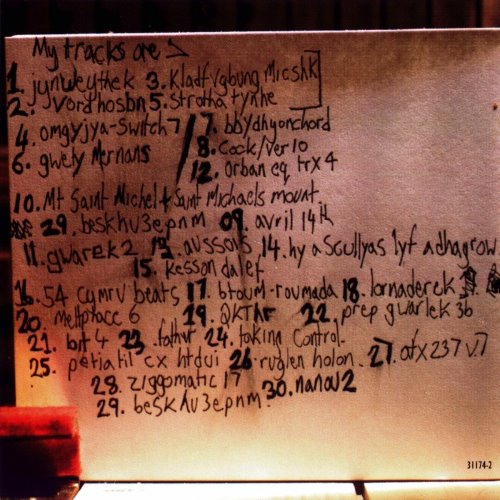 My tracks are >
1. jynweythek 3. Kladfvgbung Micshk
2. Jvordhosbn 5. Strotha tynhe
4. omgyjya-Switch7 7. bbydhyonchord
6. gwety Mernans 8. Cock/ver10
12. Orban eq trx 4
10. Mt Saint Michel + Saint Michaels mount.
29. beskhu3epnm 09. avril 14th
11. gwarek 2 13. aussois 14. hy a Scullyas lyf adhagrow.
15. Kesson dalef
16. 54 cymru beats 17. btoum-roumada 18. lornaderek
20. meltphace 6 19. QKThr 22. prep gwarlek 3b
21. bit 4 23. father 24. taking Control.
25. petiatil cx htdui 26. ruglen holon. 27. afx237 v.7
28. Ziggomatic 17 30. nanou 2
29. beskhu3epnm.
31174-2